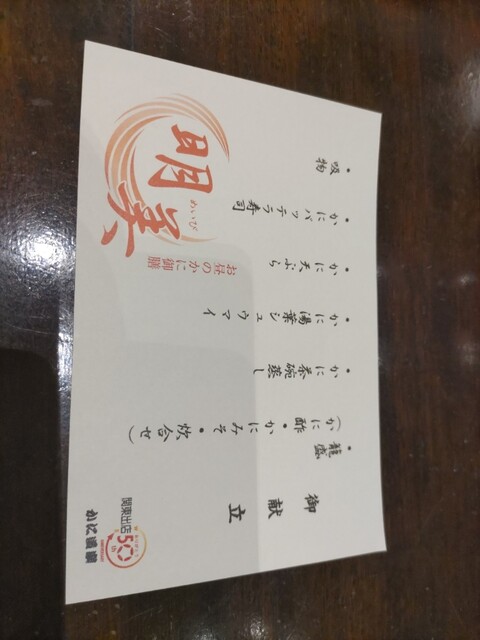 御献立
・籠盛
(かに酢・かにみそ・炊合せ)
・かに茶碗蒸し
・かに湯葉シュウマイ
・かに天ぷら
・かにバッテラ寿司
・吸物
明美
めいび
お昼のかに御膳
関東出店
50th
かに道楽